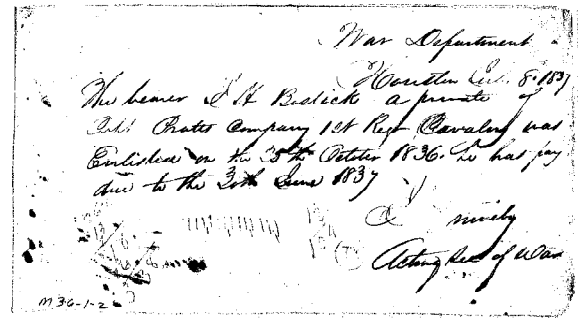 War Department
Houston 8. 1837
The bearer J H Bostick a private of
Capt Company 1st Regt Cavalry was
Enlisted on the 30th October 1836. he has pay
due to the 30th June 1837
Acting Sec of War
M36-1-2